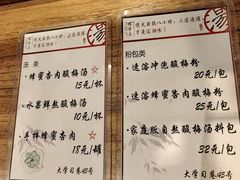 汤
汤类
·蜂蜜杏肉酸梅汤
15元/杯
·水果鲜熬酸梅汤
10元/杯
·车梓蜂蜜杏肉
18元/罐
大学习巷45号
汤
粉包类
·速溶冲泡酸梅粉
20元/包
·速溶蜂蜜杏肉酸梅粉
25元/包
·家庭版自熬酸梅汤料包
32元/包
大学习巷45号